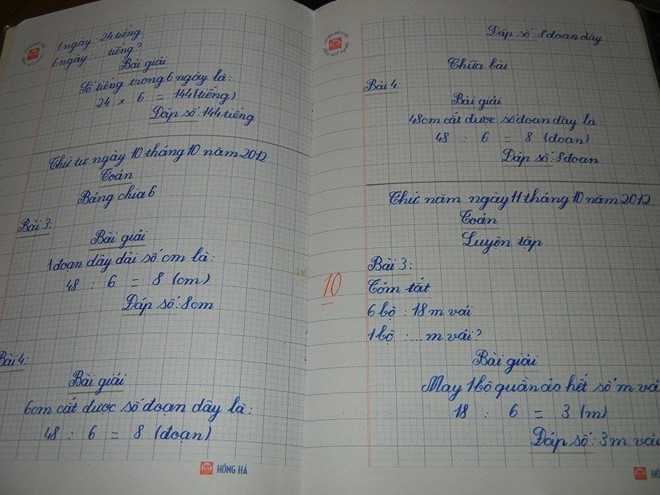 1 ngày 24 tiếng
6 ngày ... tiếng?
Bài giải
Số tiếng trong 6 ngày là:
24 x 6 = 144 (tiếng)
Đáp số: 144 tiếng
Thứ tư ngày 10 tháng 10 năm 2012
Toán
Bảng chia 6
Bài 3:
Bài giải
1 đoạn dây dài số cm là:
48 : 6 = 8 (cm)
Đáp số: 8cm
Bài 4:
Bài giải
6cm cắt được số đoạn dây là:
48 : 6 = 8 (đoạn)
HỒNG HÀ
Đáp số 8 đoạn dây
Chữa bài
Bài 4:
Bài giải
48cm cắt được số đoạn dây là
48 : 6 = 8 (đoạn)
Đáp số: 8 đoạn
Thứ năm ngày 11 tháng 10 năm 2012
Toán
Luyện tập
10
Bài 3:
Tóm tắt
6 bộ : 18 m vải
1 bộ : ... m vải?
Bài giải
May 1 bộ quần áo hết số m vải
18 : 6 = 3 (m)
Đáp số: 3 m vải